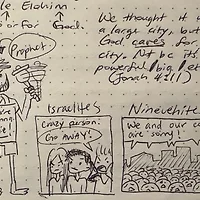 le. Elohim
s or for God.
We thought it w
a large city, but
God cares for
city. Not bc its
powerful/big/et
(Jonah 4:11)
Prophet
Israelites
Crazy person!
Go AWAY!
Ninevehite
We and our c
are sorry!